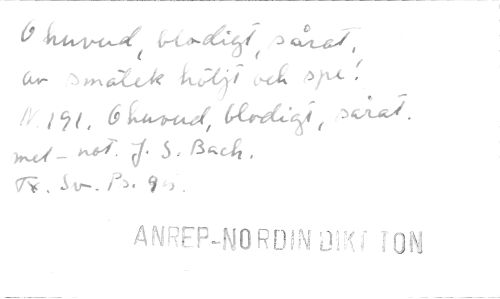 O huvud, blodigt, sårat,
av smälek höljt och spe!
N. 191. O huvud, blodigt, sårat.
mel-not. J. S. Bach.
Tx. Sv. Ps. 95.
ANREP-NORDIN DIKT TON